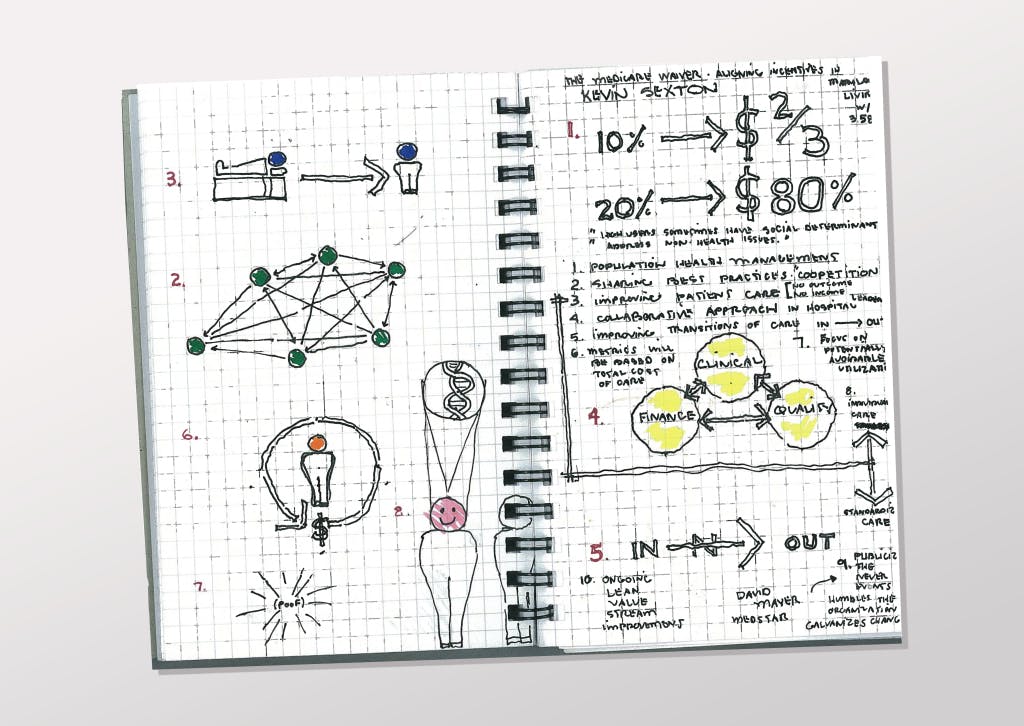 3.
2.
6.
8.
7.
(POOF)
THE MEDICARE WAIVER - ALIGNING INCENTIVES IN
KEVIN SEXTON
LIVIN
W/
1.
10% → $ 2/3
20% → $ 80%
"HIGH USERS SOMETIMES HAVE SOCIAL DETERMINANT
"ADDRESS NON-HEALTH ISSUES."
1. POPULATION HEALTH MANAGEMENTS
2. SHARING BEST PRACTICES. "COOPETITION
3. IMPROVING PATIENT CARE [NO OUTCOME
NO INCOME
4. COLLABORATIVE APPROACH IN HOSPITAL LEADER
5. IMPROVING TRANSITIONS OF CARE IN → OUT
6. METRICS WILL
BE BASED ON
TOTAL COST
OF CARE
7. FOCUS ON
POTENTIALLY
AVOIDABLE
UTILIZATI
CLINICAL
4.
FINANCE
QUALITY
8.
CARE
STANDARDIZ
CARE
5. IN → OUT
N
9. PUBLICIZ
THE
NEVER
EVENTS
HUMBLES THE
ORGANIZATION
GALVANIZES CHANG
10. ONGOING
LEAN
VALUE
STREAM
IMPROVEMENTS
DAVID
MAYER
MEDSTAR